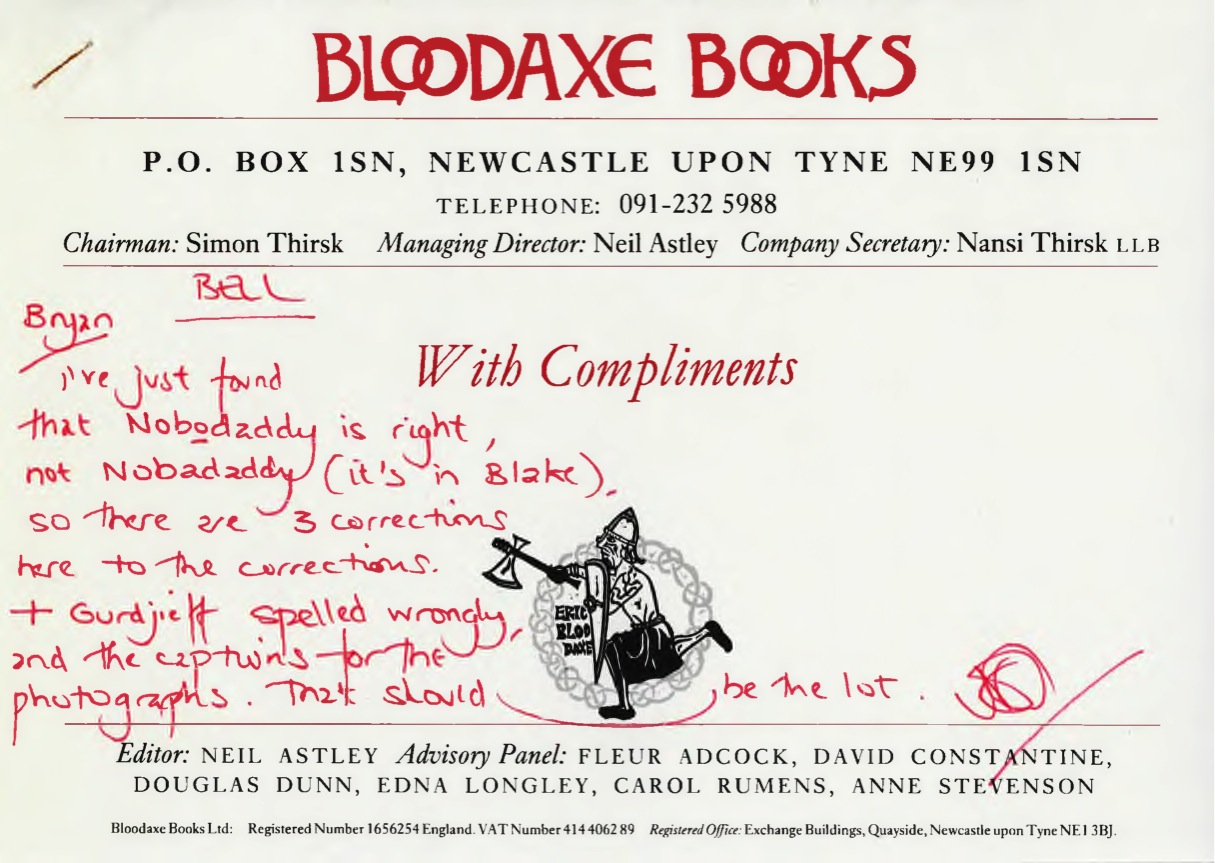 BLOODAXE BOOKS
P.O. BOX 1SN, NEWCASTLE UPON TYNE NE99 1SN
TELEPHONE: 091-232 5988
Chairman: Simon Thirsk Managing Director: Neil Astley Company Secretary: Nansi Thirsk LLB
BELL
Bryan
With Compliments
I've just found
that Nobodaddy is right,
not Nobadaddy (it's in Blake).
so there are 3 corrections
here to the corrections.
+ Gurdjieff spelled wrongly,
and the captions for the
photographs. That should be the lot.
ERIC
BLOO
DAXE
Editor: NEIL ASTLEY Advisory Panel: FLEUR ADCOCK, DAVID CONSTANTINE,
DOUGLAS DUNN, EDNA LONGLEY, CAROL RUMENS, ANNE STEVENSON
Bloodaxe Books Ltd: Registered Number 1656254 England. VAT Number 414 4062 89 Registered Office: Exchange Buildings, Quayside, Newcastle upon Tyne NE1 3BJ.